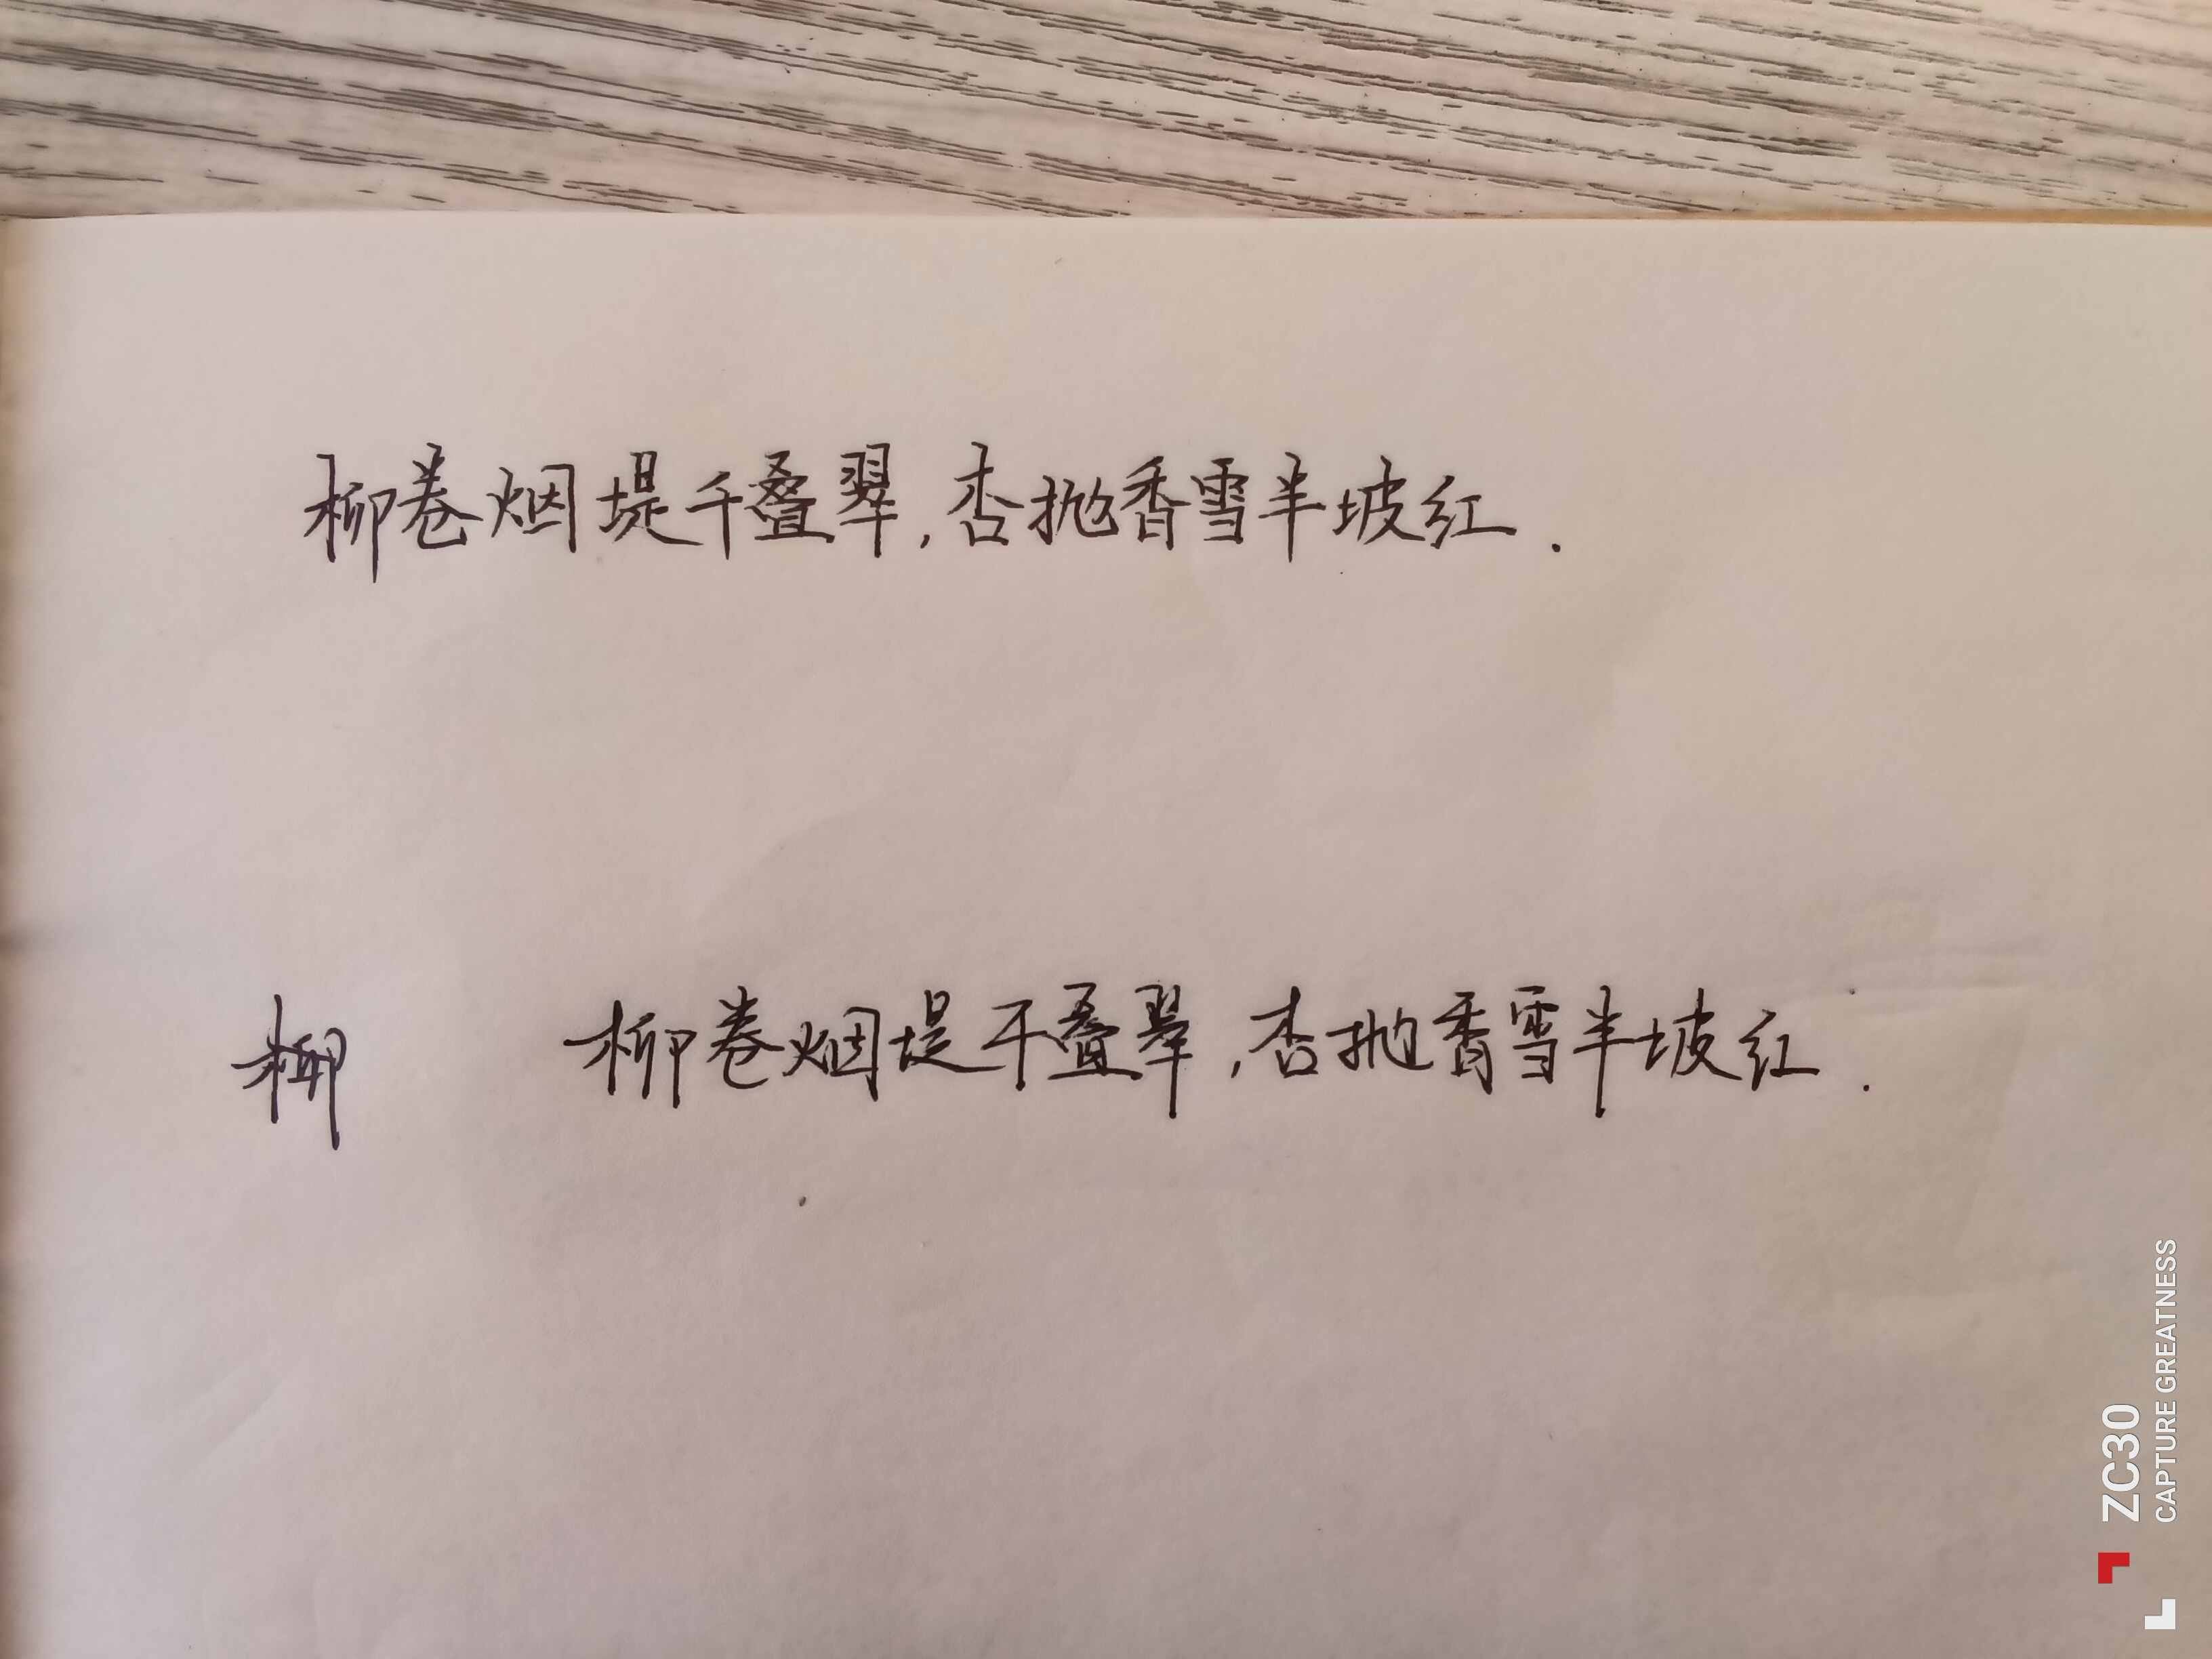 柳卷烟堤千叠翠,杏抛香雪半坡红.
柳 柳卷烟堤千叠翠,杏抛香雪半坡红.
ZC30
CAPTURE GREATNESS